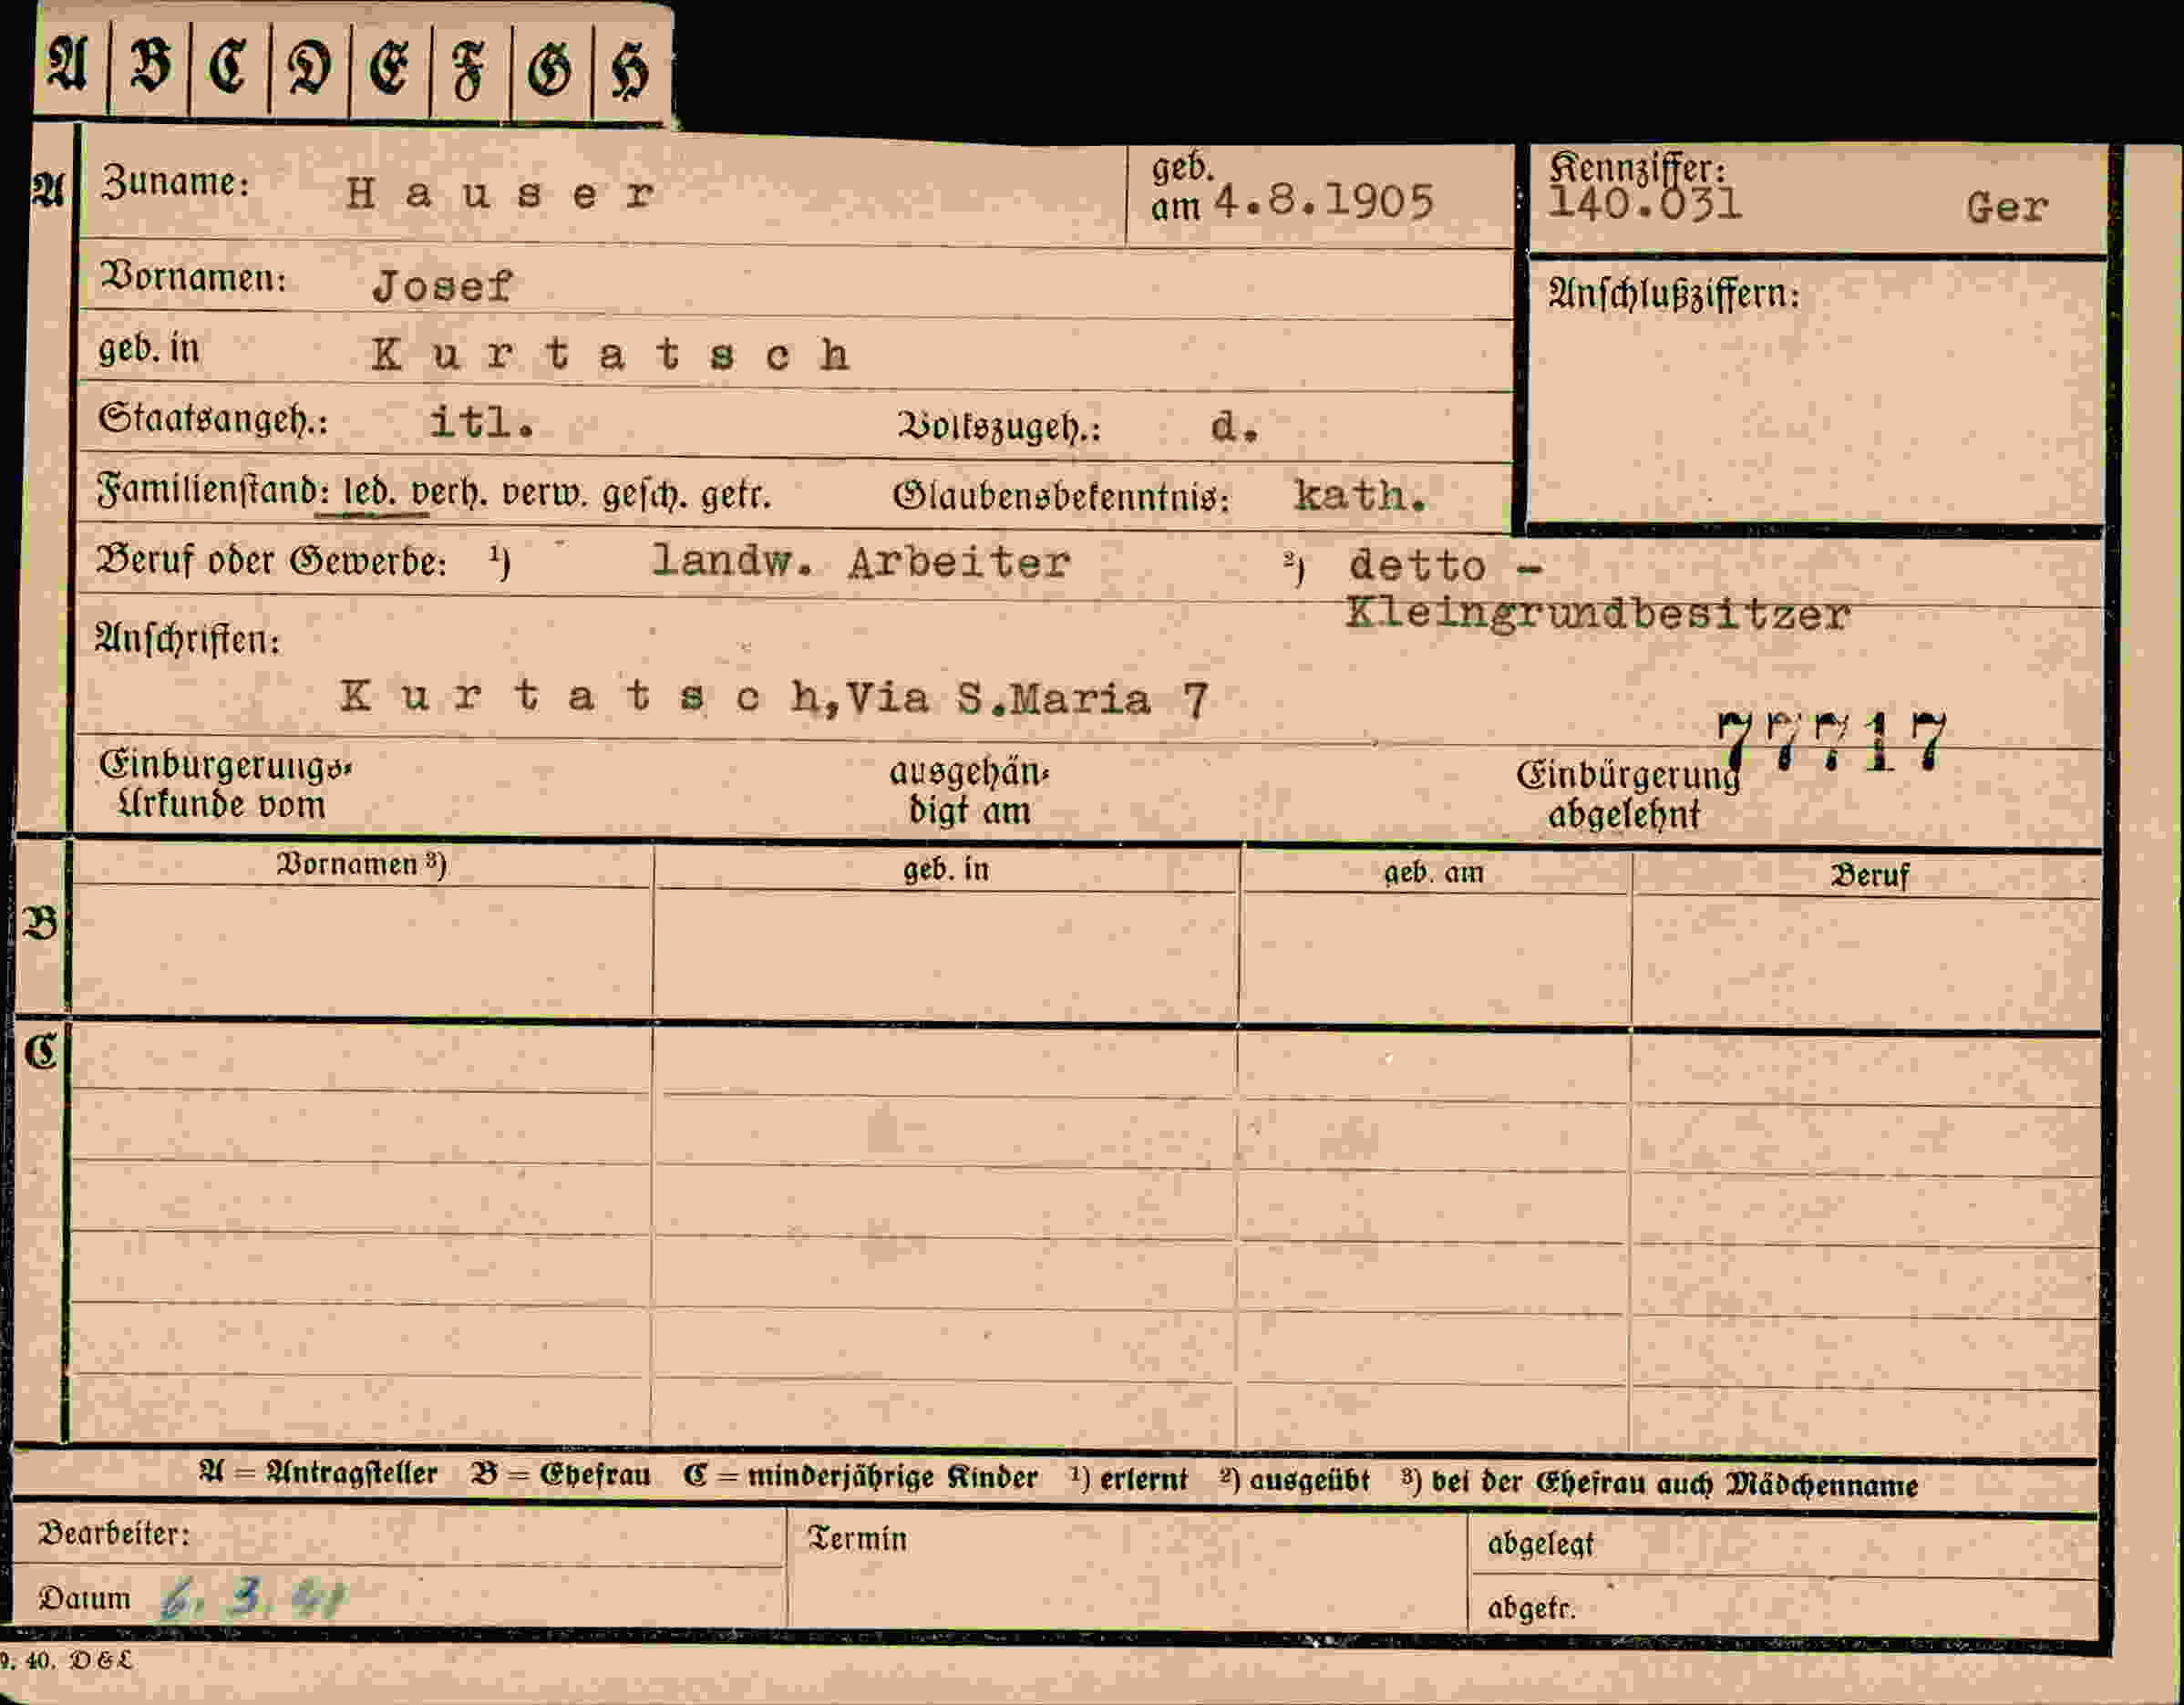 A B C D E F G H
A Zuname: H a u s e r geb. am 4.8.1905 Kennziffer: 140.031 Ger
Vornamen: Josef Anschlußziffern:
geb. in K u r t a t s c h
Staatsangeh.: itl. Volkszugeh.: d.
Familienstand: led. verh. verw. gesch. getr. Glaubensbekenntnis: kath.
Beruf oder Gewerbe: ¹) landw. Arbeiter ²) detto -
Kleingrundbesitzer
Anschriften:
K u r t a t s c h,Via S.Maria 7
77717
Einbürgerungs- ausgehän- Einbürgerung
Urkunde vom digt am abgelehnt
Vornamen ³) geb. in geb. am Beruf
B
C
A = Antragsteller B = Ehefrau C = minderjährige Kinder ¹) erlernt ²) ausgeübt ³) bei der Ehefrau auch Mädchenname
Bearbeiter: Termin abgelegt
Datum 6. 3. 41 abgetr.
9. 40. D & L